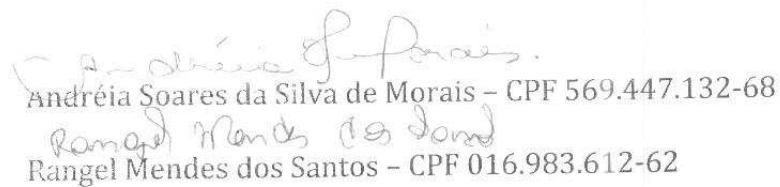 Andréia S. Morais.
Andréia Soares da Silva de Morais – CPF 569.447.132-68
Rangel Mendes dos Santos
Rangel Mendes dos Santos – CPF 016.983.612-62